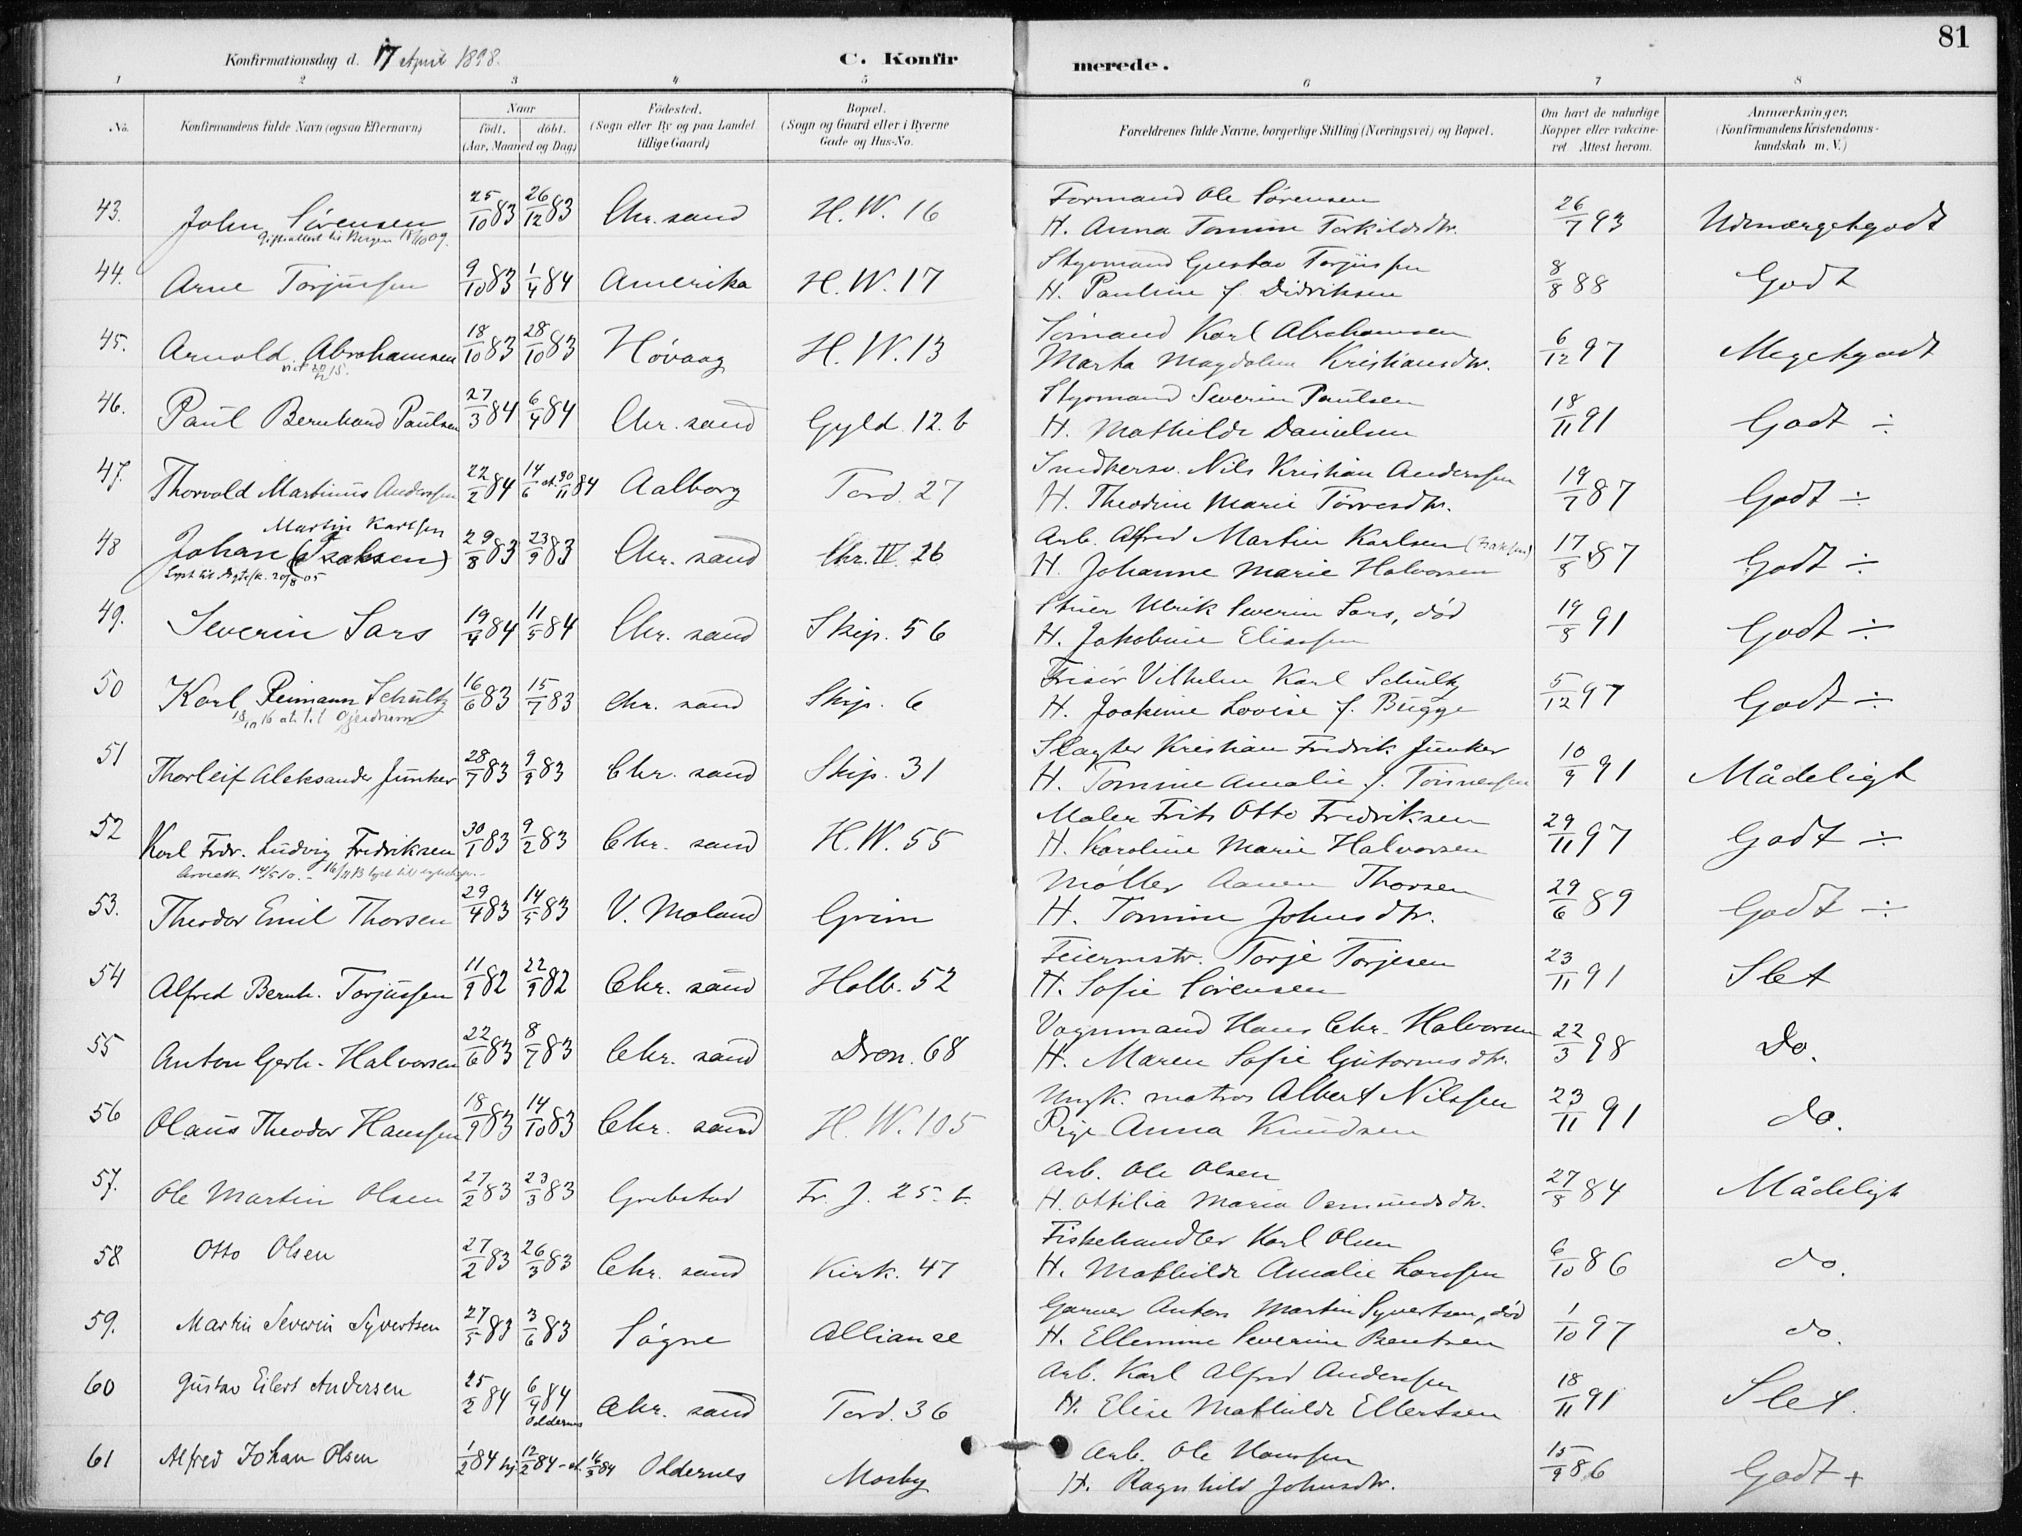 81
Konfirmationsdag d. 17 April 1898.
C. Konfirmerede.
1 2 3 4 5 6 7 8
No.
Konfirmandens fulde Navn (ogsaa Efternavn)
Naar
födt. döbt.
(Aar, Maaned og Dag)
Födested.
(Sogn eller By og paa Landet
tillige Gaard)
Bopæl.
(Sogn og Gaard eller i Byerne
Gade og Hus-No.
Forældrenes fulde Navne, borgerlige Stilling (Næringsvei) og Bopæl.
Om havt de naturlige
Kopper eller vakcine-
ret Attest herom.
Anmærkninger.
(Konfirmandens Kristendoms-
kundskab m. V.)
43. John Sörensen 25/10 83 26/12 83 Chr. sand H. W. 16 Formand Ole Sörensen 26/7 93 Udmærgetgodt
H. Anna Tomine Torkildsdtr.
44. Arne Torjussen 9/10 83 1/4 84 Amerika H. W. 17 Styrmand Gustav Torjussen 8/8 88 Godt
H. Pauline f. Didriksen
45. Arnold Abrahamsen 18/10 83 28/10 83 Hövaag H. W. 13 Sömand Karl Abrahamsen 6/12 97 Megetgodt
Marta Magdalene Kristiansdtr.
46. Paul Bernhard Paulsen 27/3 84 6/4 84 Chr. sand Gyld. 12. b Styrmand Severin Paulsen 18/11 91 Godt ÷
H. Mathilde Danielsen
47. Thorvald Martinus Anderssen 22/2 84 14/6 st. 30/11 84 Aalborg Tord. 27 Snedkersv. Nils Kristian Anderssen 19/7 87 Godt ÷
H. Theodine Marie Törresdtr.
48 Johan Martin Karlsen (Isaksen) 29/8 83 23/9 83 Chr. sand Chr. IV. 26 Arb. Alfred Martin Karlsen (Isaksen) 17/8 87 Godt ÷
H. Johanne Marie Halvorsen
49. Severin Sars 19/4 84 11/5 84 Chr. sand Skip. 56 Stuer Ulrik Severin Sars, död 19/8 91 Godt ÷
H. Jakobine Eliassen
50 Karl Reimann Schultz 16/6 83 15/7 83 Chr. sand Skip. 6 Frisör Vilhelm Karl Schultz 5/12 97 Godt ÷
H. Joakime Lovise f. Bugge
51 Thorleif Aleksander Junker 28/7 83 9/9 83 Chr. sand Skip. 31 Slagter Kristian Fredrik Junker 10/9 91 Mådeligt
H. Tomine Amalie f. Tönnessen
52 Karl Fredr. Ludvig Fredriksen 30/1 83 9/2 83 Chr. sand H. W. 55 Maler Frits Otto Fredriksen 29/11 97 Godt ÷
H. Karoline Marie Halvorsen
53. Theodor Emil Thorsen 29/4 83 14/5 83 V. Moland Grim Möller Aanen Thorsen 29/6 89 Godt ÷
H. Tomine Johnsdtr.
54 Alfred Bernh. Torjussen 11/9 82 22/9 82 Chr. sand Holb. 52 Feiermstr. Torje Torjesen 23/11 91 Slet
H. Sofie Sörensen
55 Anton Gerh. Halvorsen 22/6 83 8/7 83 Chr. sand Dron. 68 Vognmand Hans Chr. Halvorsen 22/3 98 Do.
H. Maren Sofie Gutormsdtr.
56 Olaus Theodor Hanssen 18/9 83 14/10 83 Chr. sand H. W. 105 Ungk. matros Albert Nilssen 23/11 91 do.
Pige Anna Knudsen
57. Ole Martin Olsen 27/2 83 23/3 83 Grebstad Fr. J. 25. b. Arb. Ole Olsen 27/8 84 Mådeligt
H. Ottilia Maria Osmundsdtr.
58 Otto Olsen 27/2 83 26/3 83 Chr. sand Kirk. 47 Fiskehandler Karl Olsen 6/10 86 do.
H. Mathilde Amalie Larssen
59. Martin Severin Syvertsen 27/5 83 3/6 83 Sögne Alliance Garver Anton Martin Syvertsen, död 1/10 97 do.
H. Ellemine Severine Berntsen
60 Gustav Eilert Andersen 25/2 84 6/4 84 Chr. sand Tord. 36 Arb. Karl Alfred Anderssen 18/11 91 Slet.
H. Elise Mathilde Ellertsen
61 Alfred Johan Olsen 1/2 84 hj 12/2 84 - st. 16/3 84 Oddernes Mosby Arb. Ole Hanssen 15/9 86 Godt +
H. Ragnhild Johnsdtr.